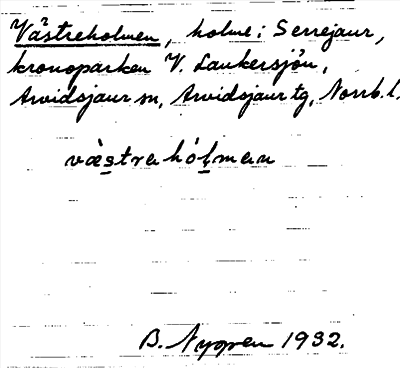 Västreholmen, holme i Serrejaur,
kronoparken V. Laukersjön,
Arvidsjaur sn, Arvidsjaur tg, Norrb. l.
väs̱tra hól̠man
B. Nygren 1932.